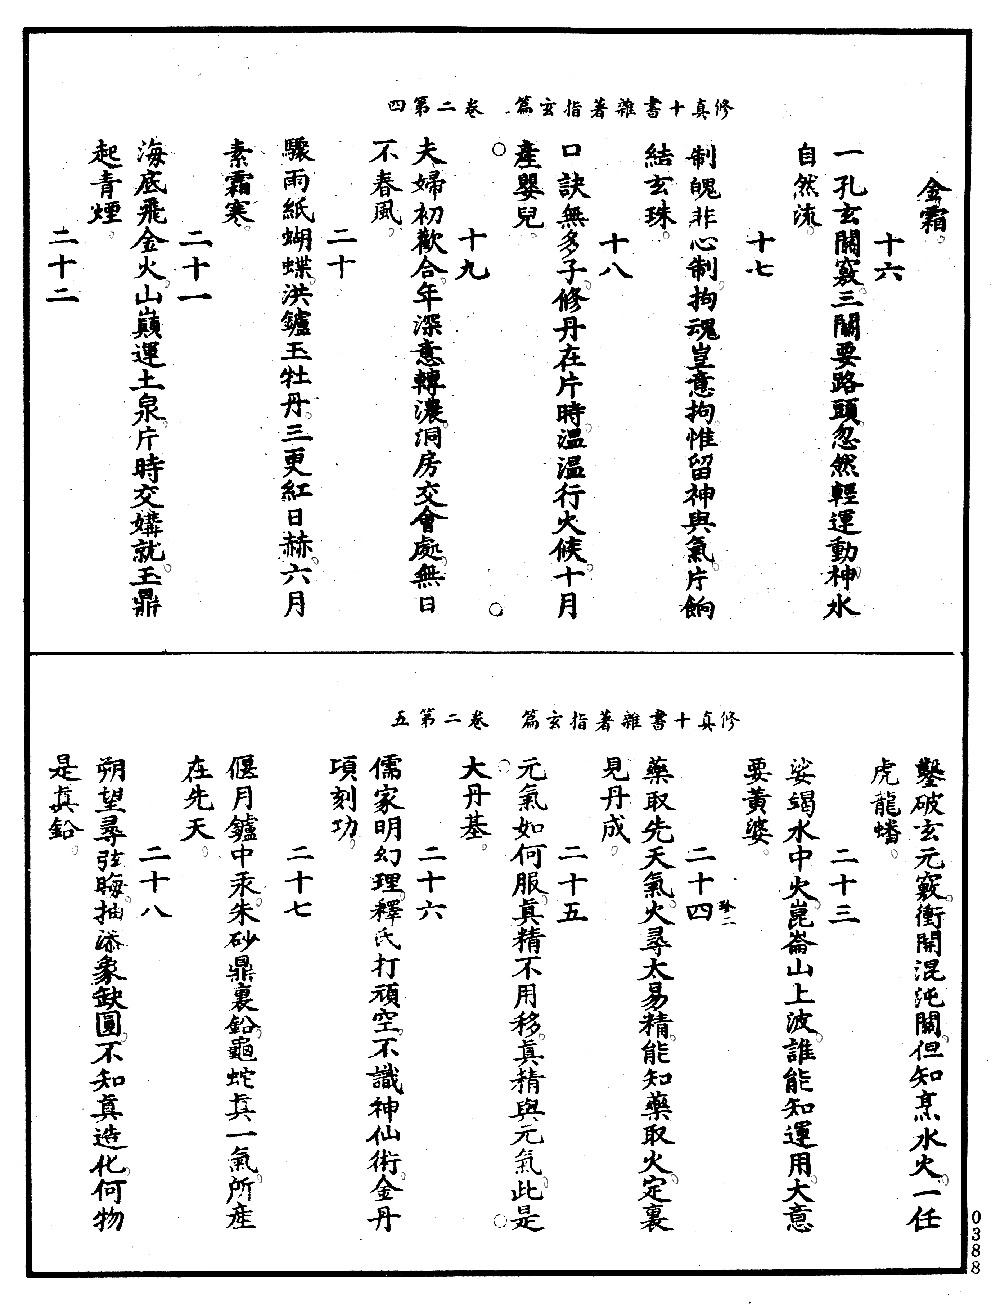 修真十書雜著指玄篇　卷二第四
金霜。
十六
一孔玄關竅。三關要路頭。忽然輕運動。神水
自然流。
十七
制魄非心制。拘魂豈意拘。惟留神與氣。片餉
結玄珠。
十八
口訣無多子。修丹在片時。溫溫行火候。十月
產嬰兒。
十九
夫婦初歡合。年深意轉濃。洞房交會處。無日
不春風。
二十
驟雨紙蝴蝶。洪鑪玉牡丹。三更紅日赫。六月
素霜寒。
二十一
海底飛金火。山巔運土泉。片時交媾就。玉鼎
起青煙。
二十二
修真十書雜著指玄篇　卷二第五
鑿破玄元竅。衝開混沌關。但知烹水火。一任
虎龍蟠。
二十三
娑竭水中火。崑崙山上波。誰能知運用。大意
要黃婆。
二十四
珍二
藥取先天氣。火尋太易精。能知藥取火。定裏
見丹成。
二十五
元氣如何服。真精不用移。真精與元氣。此是
大丹基。
二十六
儒家明幻理。釋氏打頑空。不識神仙術。金丹
頃刻功。
二十七
偃月鑪中汞。朱砂鼎裏鉛。龜蛇真一氣。所產
在先天。
二十八
朔望尋弦晦。抽添象缺圓。不知真造化。何物
是真鉛。
0388